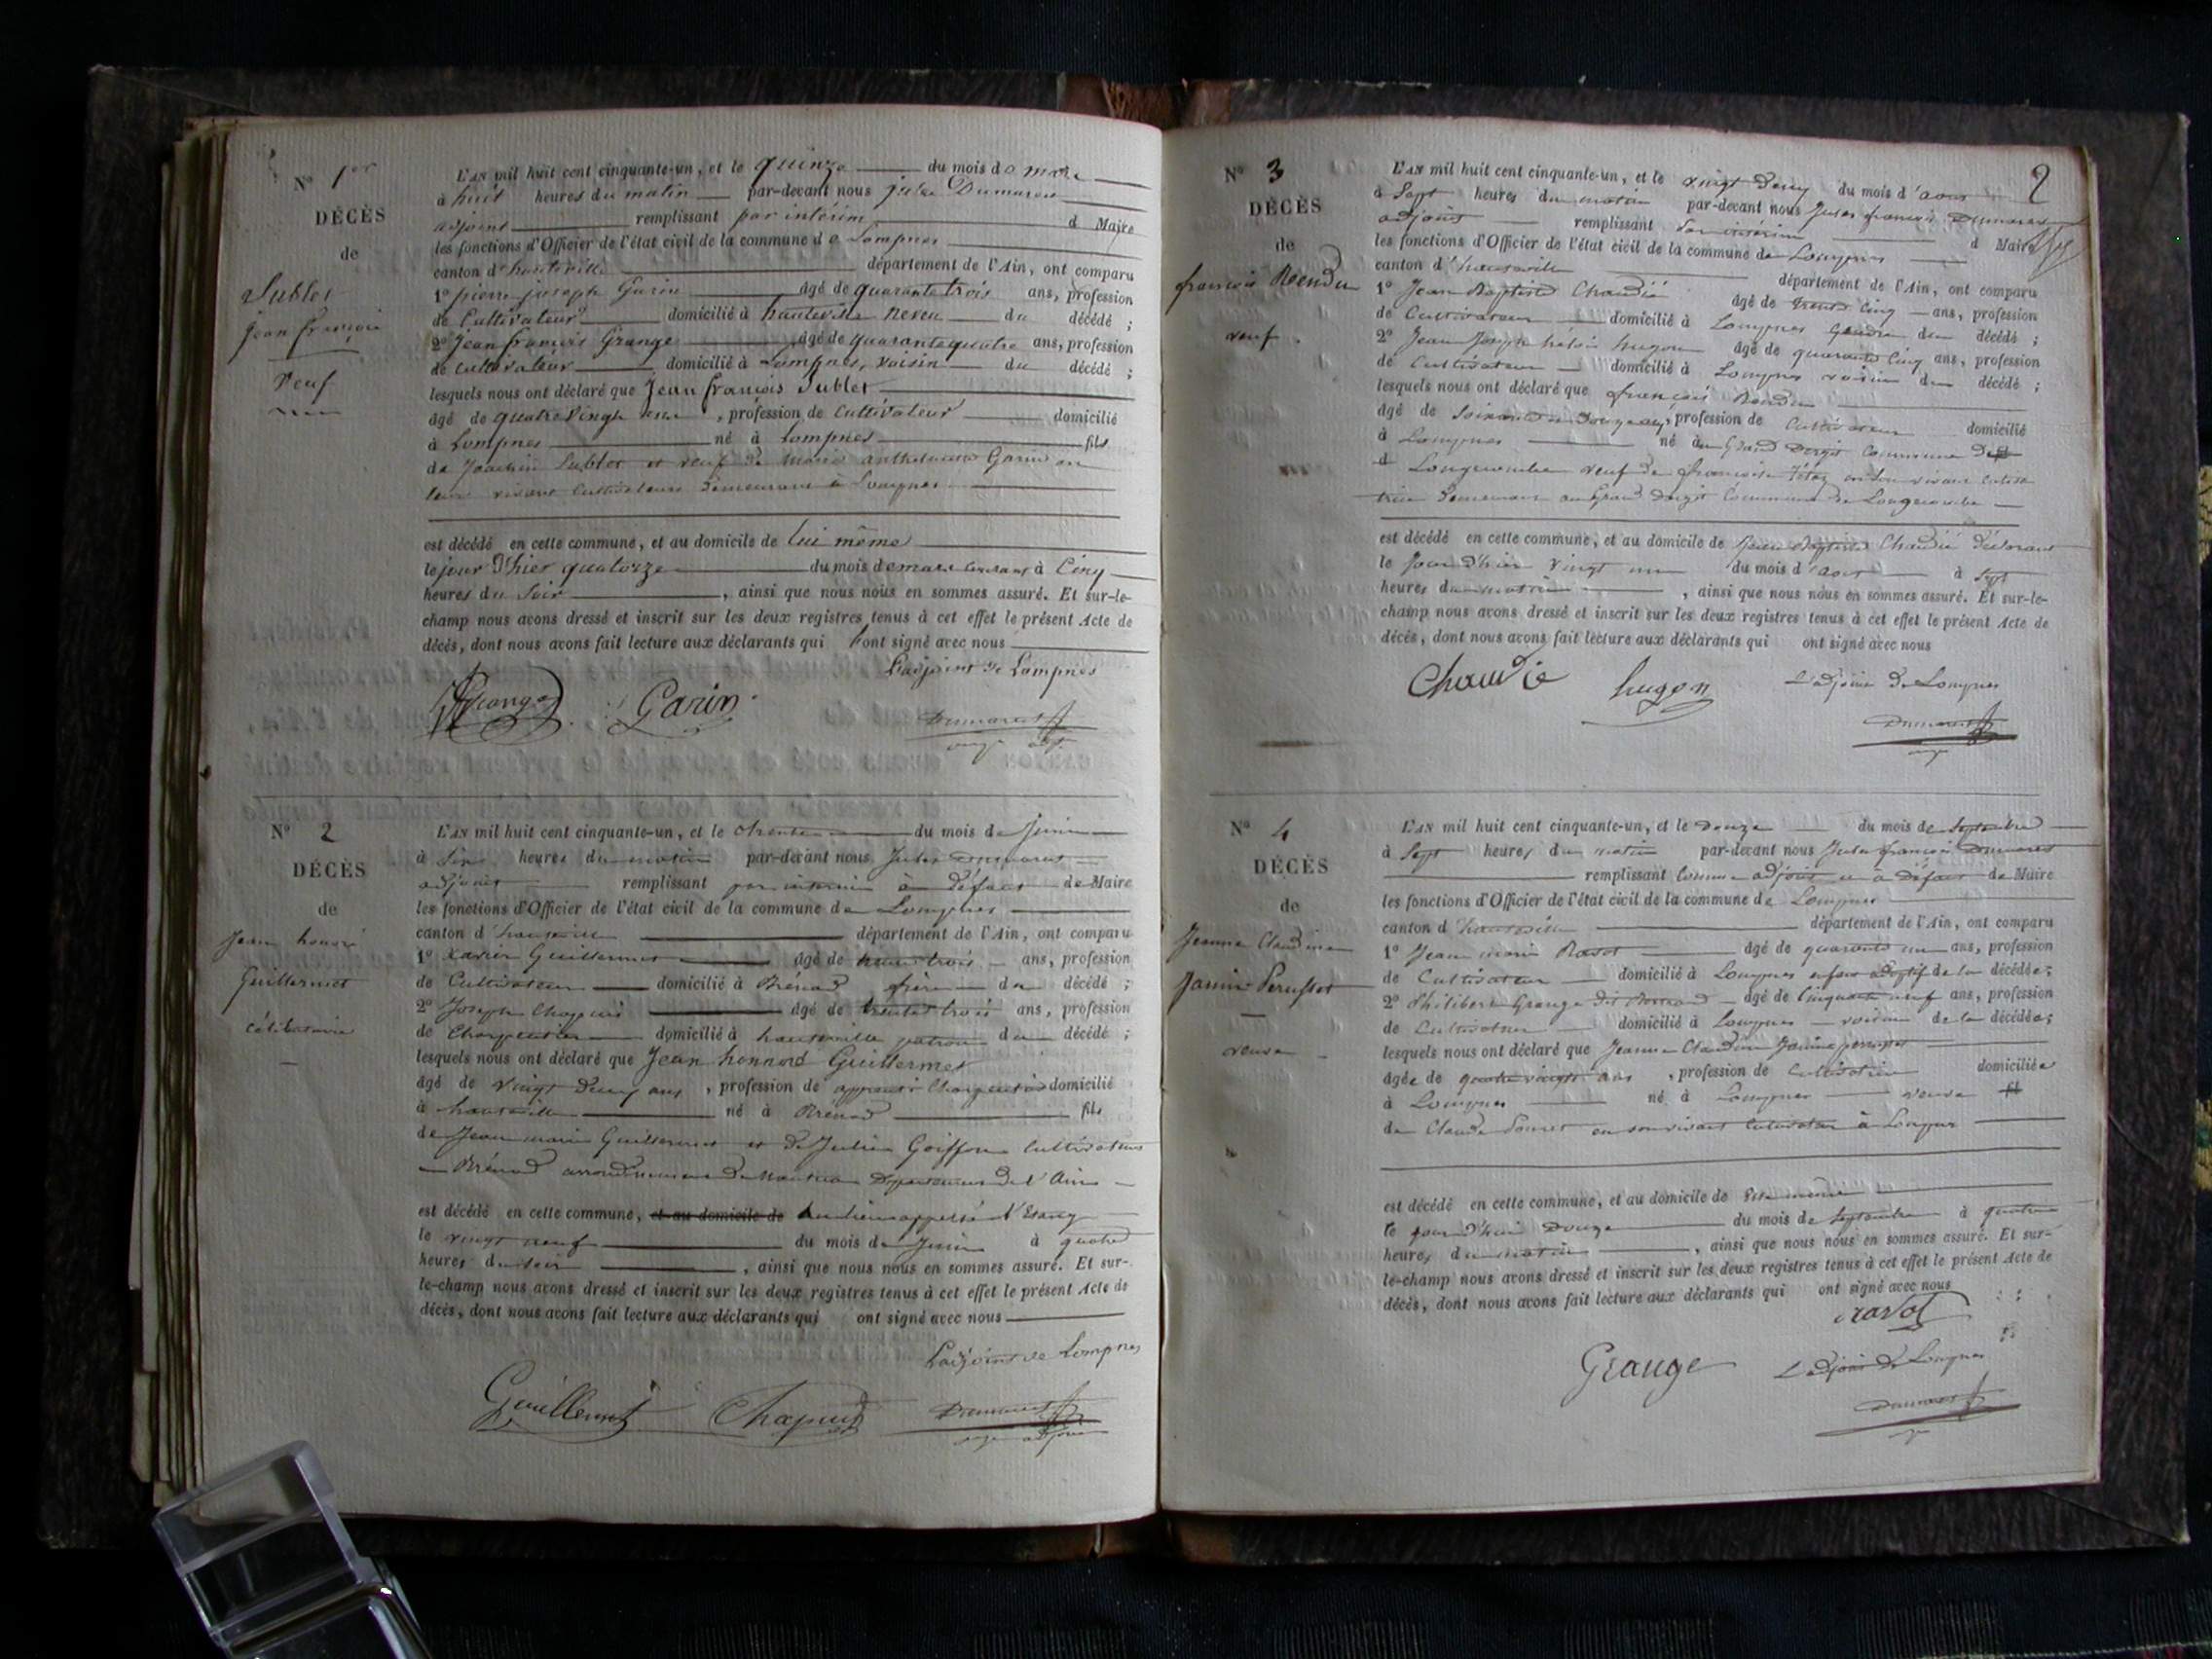 N° 1er
DÉCÈS
de
Sublet
Jean françois
Veuf
L'AN mil huit cent cinquante-un, et le quinze du mois de mars
à huit heures du matin par-devant nous jules Dumarest
adjoint remplissant par intérim d Maire
les fonctions d'Officier de l'état civil de la commune de Lompnes
canton d'hauteville département de l'Ain, ont comparu
1° pierre joseph Garin âgé de quarante trois ans, profession
de Cultivateur domicilié à hauteville Neveu du décédé ;
2° Jean françois Grange âgé de quarante quatre ans, profession
de cultivateur domicilié à Lompnes, voisin du décédé ;
lesquels nous ont déclaré que Jean françois Sublet
âgé de quatre vingt , profession de Cultivateur domicilié
à Lompnes né à Lompnes fils
de Joachim Sublet et veuf de Marie Garin
leur vivant Cultivateurs demeurant à Lompnes
est décédé en cette commune, et au domicile de lui même
le jour d'hier quatorze du mois de mars courant à Cinq
heures du Soir , ainsi que nous nous en sommes assuré. Et sur-le-
champ nous avons dressé et inscrit sur les deux registres tenus à cet effet le présent Acte de
décès, dont nous avons fait lecture aux déclarants qui ont signé avec nous
L'adjoint de Lompnes
Grange Garin
Dumarest
N° 2
DÉCÈS
de
Jean honoré
Guillermet
Célibataire
L'AN mil huit cent cinquante-un, et le trente du mois de Juin
à Six heures du matin par-devant nous Jules Dumarest
adjoint remplissant par intérim à défaut de Maire
les fonctions d'Officier de l'état civil de la commune de Lompnes
canton d'hauteville département de l'Ain, ont comparu
1° Xavier Guillermet âgé de trente trois ans, profession
de Cultivateur domicilié à Brénod frère du décédé ;
2° Joseph Chapuis âgé de trente trois ans, profession
de Charpentier domicilié à hauteville patron du décédé ;
lesquels nous ont déclaré que Jean honnoré Guillermet
âgé de vingt deux ans , profession de apprenti Charpentier domicilié
à hauteville né à Brénod fils
de Jean marie Guillermet et de Julie Goiffon Cultivateurs
à Brénod arrondissement de Nantua Département de l'Ain
est décédé en cette commune, et au domicile de au lieu appelé l'Etang
le vingt neuf du mois de Juin à quatre
heures du soir , ainsi que nous nous en sommes assuré. Et sur-
le-champ nous avons dressé et inscrit sur les deux registres tenus à cet effet le présent Acte de
décès, dont nous avons fait lecture aux déclarants qui ont signé avec nous
L'adjoint de Lompnes
Guillermet Chapuis Dumarest
adjoint
2
N° 3
DÉCÈS
de
françois Rendu
veuf
L'AN mil huit cent cinquante-un, et le vingt deux du mois d'aout
à Sept heures du matin par-devant nous Jules françois Dumarest
adjoint remplissant par intérim d Maire
les fonctions d'Officier de l'état civil de la commune de Lompnes
canton d'hauteville département de l'Ain, ont comparu
1° Jean Baptiste Chaudié âgé de trente cinq ans, profession
de Cultivateur domicilié à Lompnes Gendre du décédé ;
2° Jean Joseph hugon âgé de quarante cinq ans, profession
de Cultivateur domicilié à Lompnes voisin du décédé ;
lesquels nous ont déclaré que françois Rendu
âgé de Soixante , profession de Cultivateur domicilié
à Lompnes né au Grand Dergit Commune de
Longecombe veuf de françoise en son vivant cultiva
trice demeurant au Grand Dergit Commune de Longecombe
est décédé en cette commune, et au domicile de Jean Baptiste Chaudié déclarant
le Jour d'hier vingt un du mois d'aout à Sept
heures du matin , ainsi que nous nous en sommes assuré. Et sur-le-
champ nous avons dressé et inscrit sur les deux registres tenus à cet effet le présent Acte de
décès, dont nous avons fait lecture aux déclarants qui ont signé avec nous
Chaudié hugon L'adjoint de Lompnes
Dumarest
N° 4
DÉCÈS
de
Jeanne Claudine
Janin
veuve
L'AN mil huit cent cinquante-un, et le Douze du mois de Septembre
à Sept heures du matin par-devant nous Jules françois Dumarest
remplissant comme adjoint et à défaut de Maire
les fonctions d'Officier de l'état civil de la commune de Lompnes
canton d'hauteville département de l'Ain, ont comparu
1° Jean marie Ravot âgé de quarante un ans, profession
de Cultivateur domicilié à Lompnes enfant adoptif de la décédée ;
2° Philibert Grange dit âgé de Cinquante neuf ans, profession
de Cultivateur domicilié à Lompnes voisin de la décédée ;
lesquels nous ont déclaré que Jeanne Claudine Janin
âgée de quatre vingts ans , profession de Cultivatrice domiciliée
à Lompnes né à Lompnes veuve fil
de Claude en son vivant Cultivateur à Lompnes
est décédé en cette commune, et au domicile de Elle même
le jour d'hui Douze du mois de Septembre à quatre
heures du matin , ainsi que nous nous en sommes assuré. Et sur-
le-champ nous avons dressé et inscrit sur les deux registres tenus à cet effet le présent Acte de
décès, dont nous avons fait lecture aux déclarants qui ont signé avec nous
ravot
Grange L'adjoint de Lompnes
Dumarest